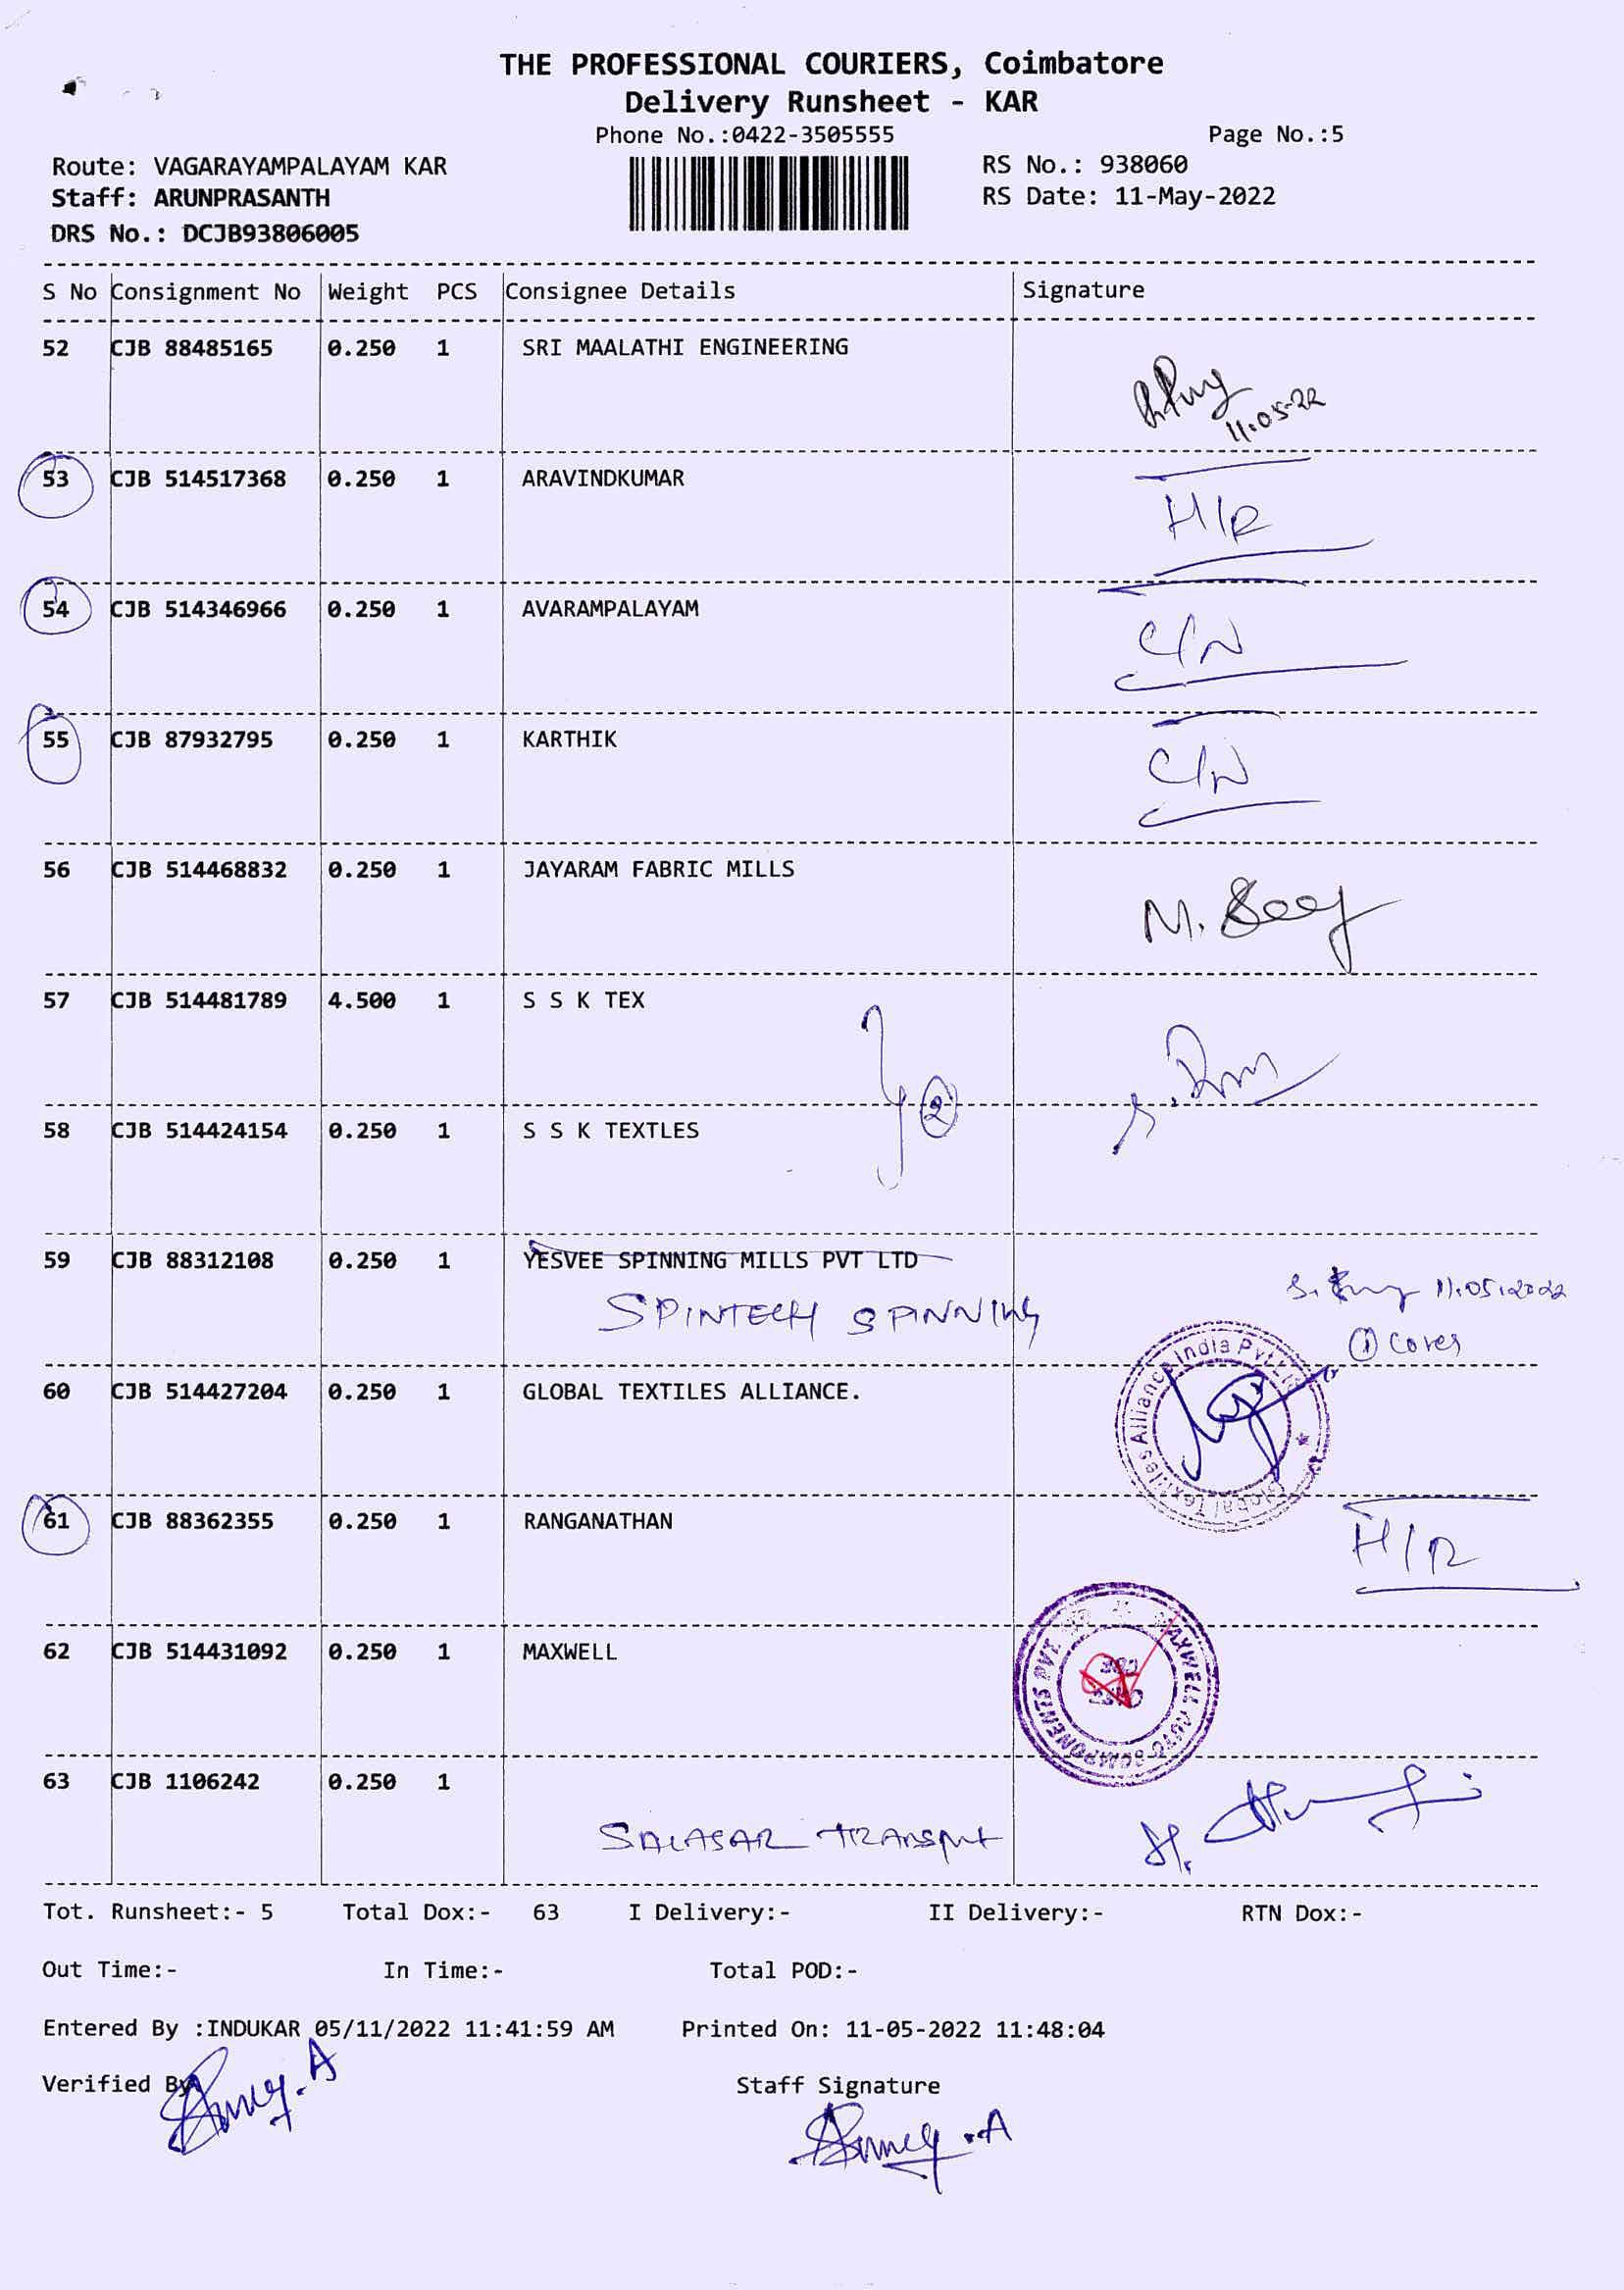 THE PROFESSIONAL COURIERS, Coimbatore
Delivery Runsheet - KAR
Phone No.:0422-3505555 Page No.:5
Route: VAGARAYAMPALAYAM KAR RS No.: 938060
Staff: ARUNPRASANTH RS Date: 11-May-2022
DRS No.: DCJB93806005
S No Consignment No Weight PCS Consignee Details Signature
52 CJB 88485165 0.250 1 SRI MAALATHI ENGINEERING
11.05-22
53 CJB 514517368 0.250 1 ARAVINDKUMAR
H/R
54 CJB 514346966 0.250 1 AVARAMPALAYAM
C/N
55 CJB 87932795 0.250 1 KARTHIK
C/N
56 CJB 514468832 0.250 1 JAYARAM FABRIC MILLS
M.
57 CJB 514481789 4.500 1 S S K TEX
2
58 CJB 514424154 0.250 1 S S K TEXTLES
59 CJB 88312108 0.250 1 YESVEE SPINNING MILLS PVT LTD
11.05.2022
SPINTECH SPINNING
1 Cover
60 CJB 514427204 0.250 1 GLOBAL TEXTILES ALLIANCE.
Global Textiles Alliance India Pvt
61 CJB 88362355 0.250 1 RANGANATHAN
H/R
62 CJB 514431092 0.250 1 MAXWELL
MAXWELL AUTO COMPONENTS PVT
63 CJB 1106242 0.250 1
SALASAR TRANSPORT
Tot. Runsheet:- 5 Total Dox:- 63 I Delivery:- II Delivery:- RTN Dox:-
Out Time:- In Time:- Total POD:-
Entered By :INDUKAR 05/11/2022 11:41:59 AM Printed On: 11-05-2022 11:48:04
Verified By Staff Signature